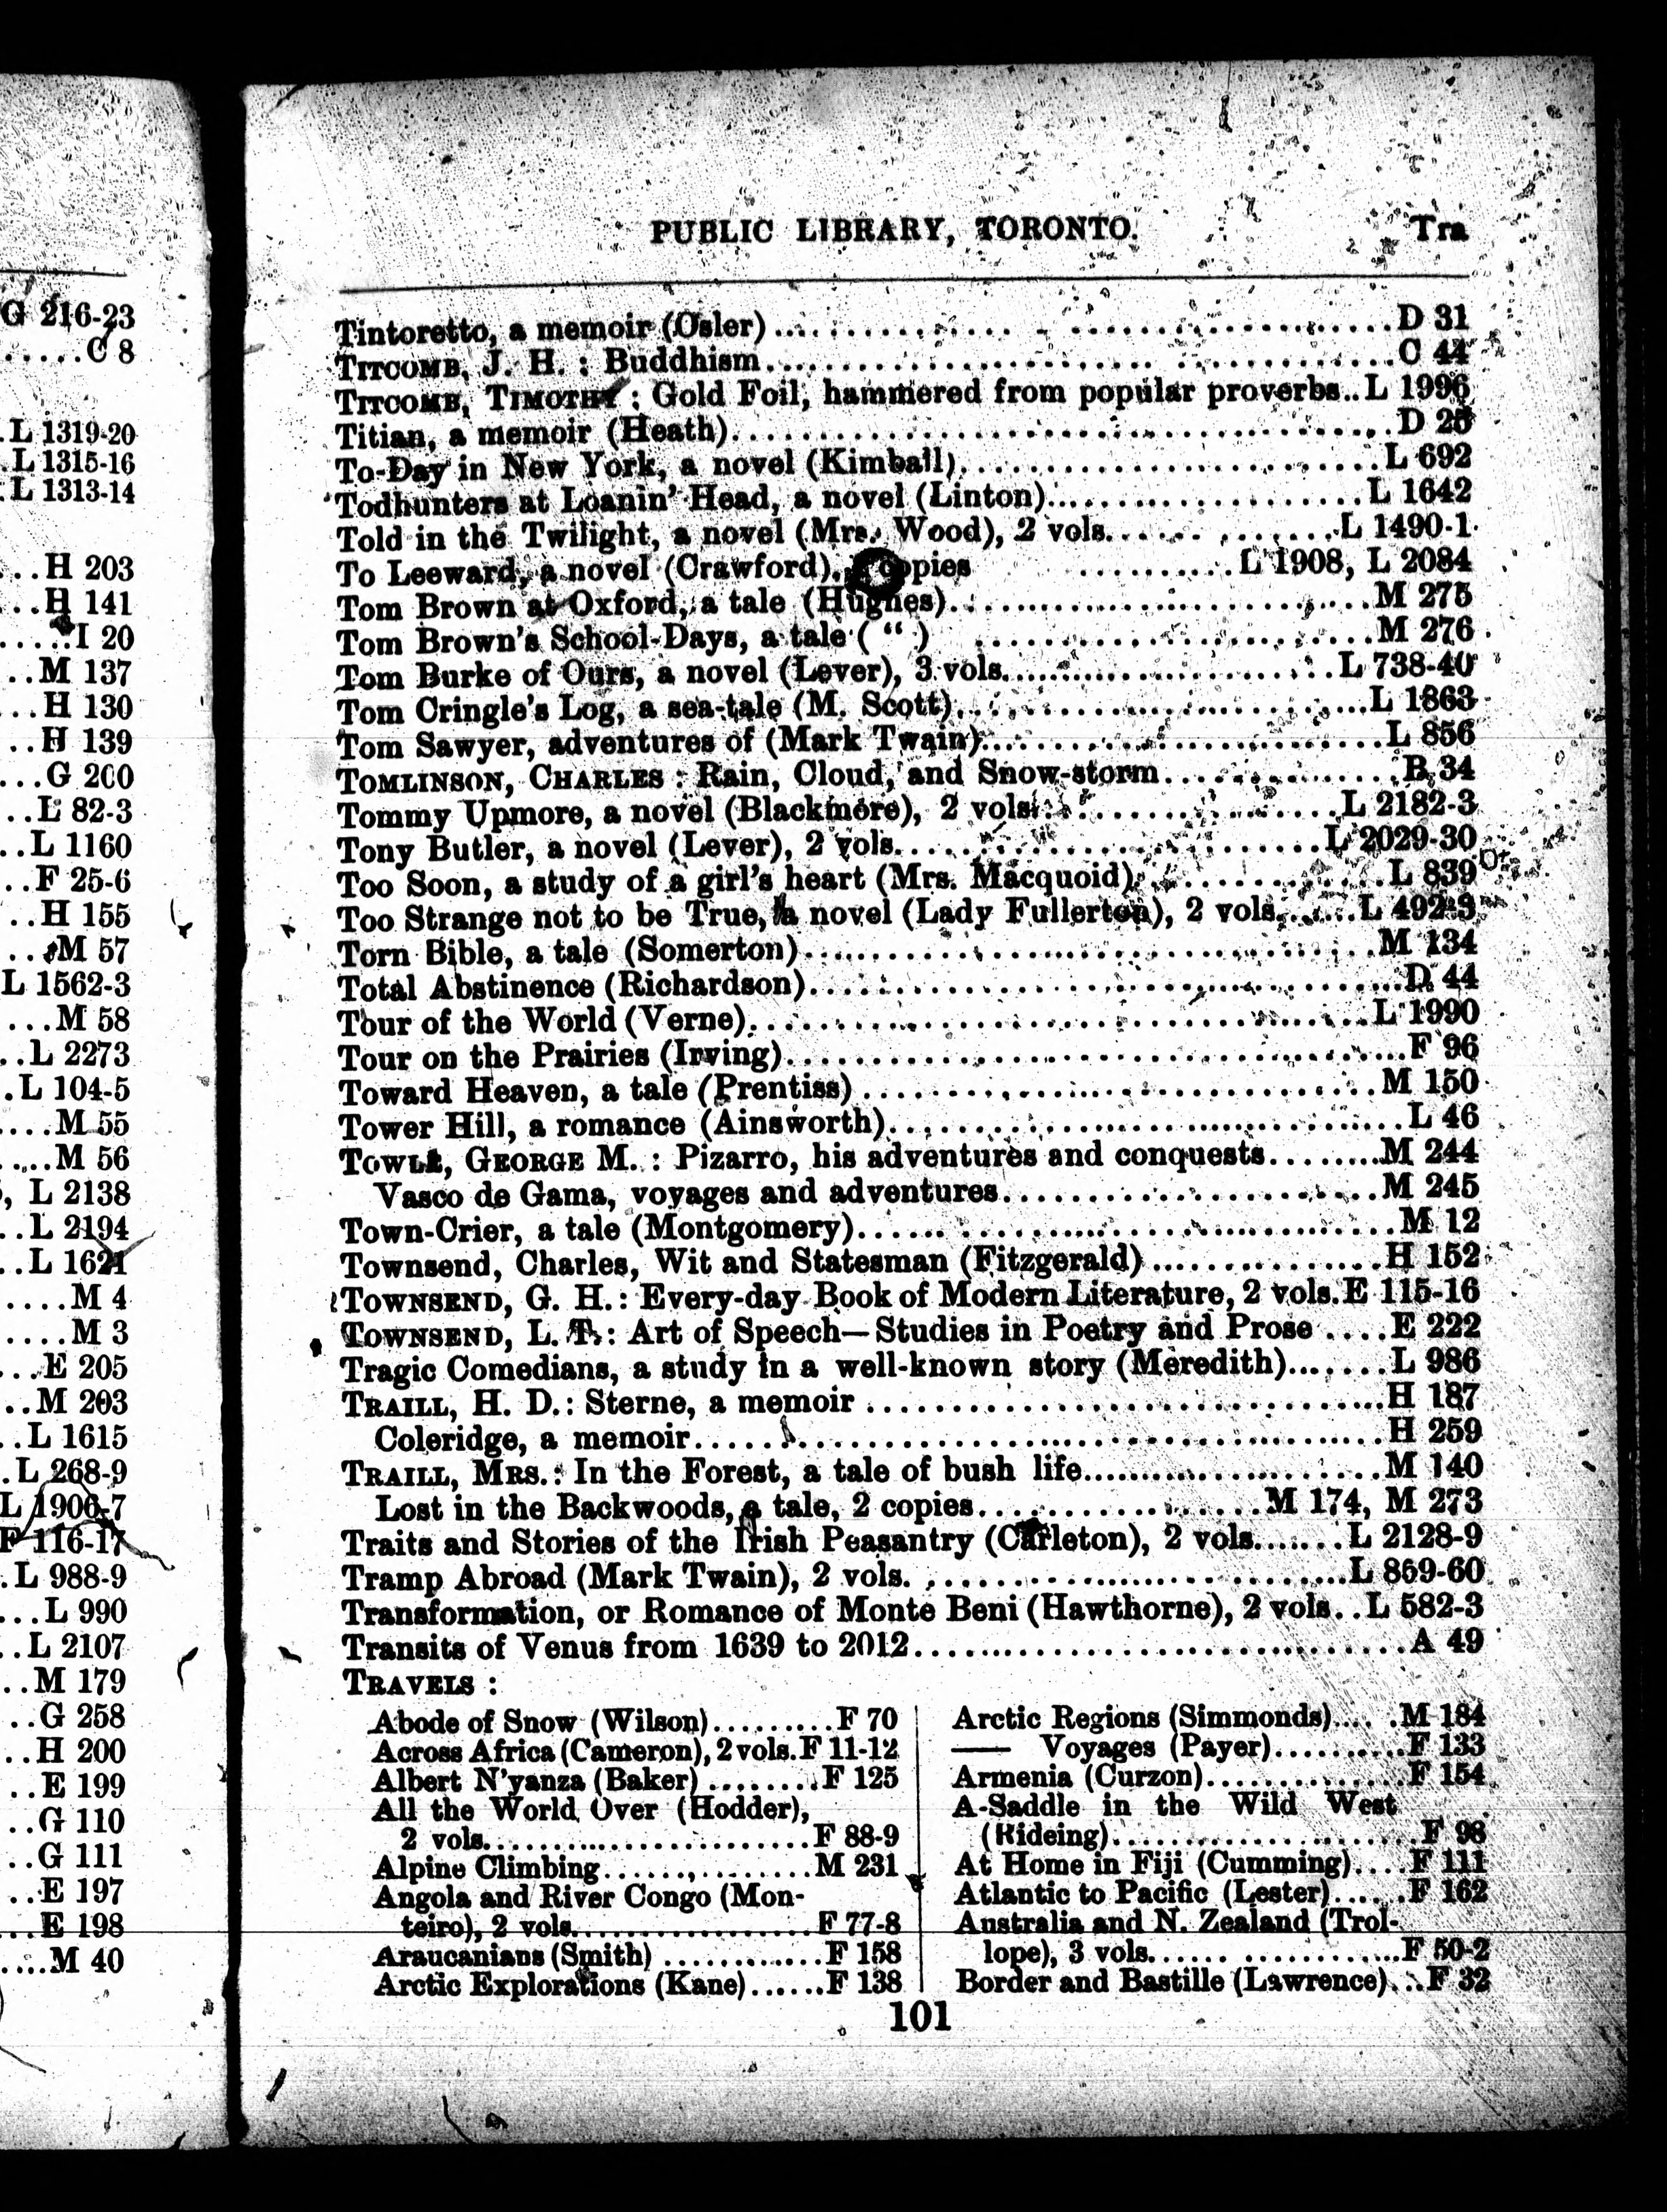 G 216-23
C 8
L 1319-20
L 1315-16
L 1313-14
H 203
H 141
I 20
M 137
H 130
H 139
G 200
L 82-3
L 1160
F 25-6
H 155
M 57
L 1562-3
M 58
L 2273
L 104-5
M 55
M 56
L 2138
L 2194
L 1621
M 4
M 3
E 205
M 203
L 1615
L 268-9
L 1906-7
F 116-17
L 988-9
L 990
L 2107
M 179
G 258
H 200
E 199
G 110
G 111
E 197
E 198
M 40
PUBLIC LIBRARY, TORONTO. Tra
Tintoretto, a memoir (Osler) D 31
TITCOMB, J. H. : Buddhism C 44
TITCOMB, TIMOTHY : Gold Foil, hammered from popular proverbs..L 1996
Titian, a memoir (Heath) D 25
To-Day in New York, a novel (Kimball) L 692
Todhunters at Loanin' Head, a novel (Linton) L 1642
Told in the Twilight, a novel (Mrs. Wood), 2 vols. L 1490-1
To Leeward, a novel (Crawford), copies L 1908, L 2084
Tom Brown at Oxford, a tale (Hughes) M 275
Tom Brown's School-Days, a tale ( " ) M 276
Tom Burke of Ours, a novel (Lever), 3 vols. L 738-40
Tom Cringle's Log, a sea-tale (M. Scott) L 1863
Tom Sawyer, adventures of (Mark Twain) L 856
TOMLINSON, CHARLES : Rain, Cloud, and Snow-storm B 34
Tommy Upmore, a novel (Blackmore), 2 vols. L 2182-3
Tony Butler, a novel (Lever), 2 vols. L 2029-30
Too Soon, a study of a girl's heart (Mrs. Macquoid) L 839
Too Strange not to be True, a novel (Lady Fullerton), 2 vols. L 492-3
Torn Bible, a tale (Somerton) M 134
Total Abstinence (Richardson) D 44
Tour of the World (Verne) L 1990
Tour on the Prairies (Irving) F 96
Toward Heaven, a tale (Prentiss) M 150
Tower Hill, a romance (Ainsworth) L 46
TOWLE, GEORGE M. : Pizarro, his adventures and conquests M 244
Vasco de Gama, voyages and adventures M 245
Town-Crier, a tale (Montgomery) M 12
Townsend, Charles, Wit and Statesman (Fitzgerald) H 152
TOWNSEND, G. H.: Every-day Book of Modern Literature, 2 vols.E 115-16
TOWNSEND, L. T.: Art of Speech—Studies in Poetry and Prose E 222
Tragic Comedians, a study in a well-known story (Meredith) L 986
TRAILL, H. D.: Sterne, a memoir H 187
Coleridge, a memoir H 259
TRAILL, MRS.: In the Forest, a tale of bush life M 140
Lost in the Backwoods, a tale, 2 copies M 174, M 273
Traits and Stories of the Irish Peasantry (Carleton), 2 vols. L 2128-9
Tramp Abroad (Mark Twain), 2 vols. L 859-60
Transformation, or Romance of Monte Beni (Hawthorne), 2 vols. L 582-3
Transits of Venus from 1639 to 2012 A 49
TRAVELS :
Abode of Snow (Wilson) F 70
Across Africa (Cameron), 2 vols. F 11-12
Albert N'yanza (Baker) F 125
All the World Over (Hodder),
2 vols. F 88-9
Alpine Climbing M 231
Angola and River Congo (Mon-
teiro), 2 vols. F 77-8
Araucanians (Smith) F 158
Arctic Explorations (Kane) F 138
Arctic Regions (Simmonds) M 184
—— Voyages (Payer) F 133
Armenia (Curzon) F 154
A-Saddle in the Wild West
(Rideing) F 98
At Home in Fiji (Cumming) F 111
Atlantic to Pacific (Lester) F 162
Australia and N. Zealand (Trol-
lope), 3 vols. F 50-2
Border and Bastille (Lawrence) F 32
101